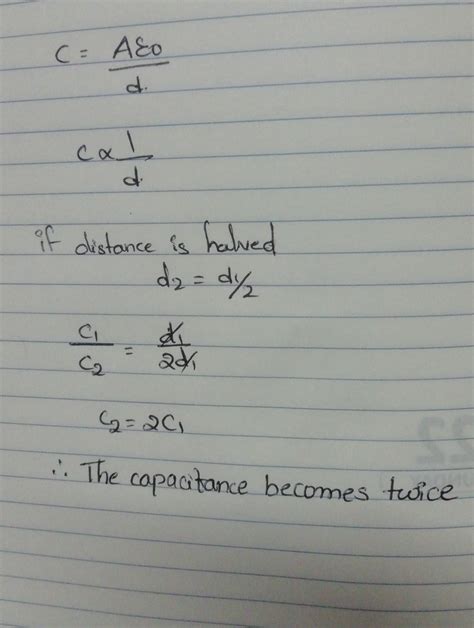 C = Aε0/d.
C ∝ 1/d.
if distance is halved
d2 = d1/2
C1/C2 = d1/2d1
C2 = 2C1
∴ The capacitance becomes twice
22